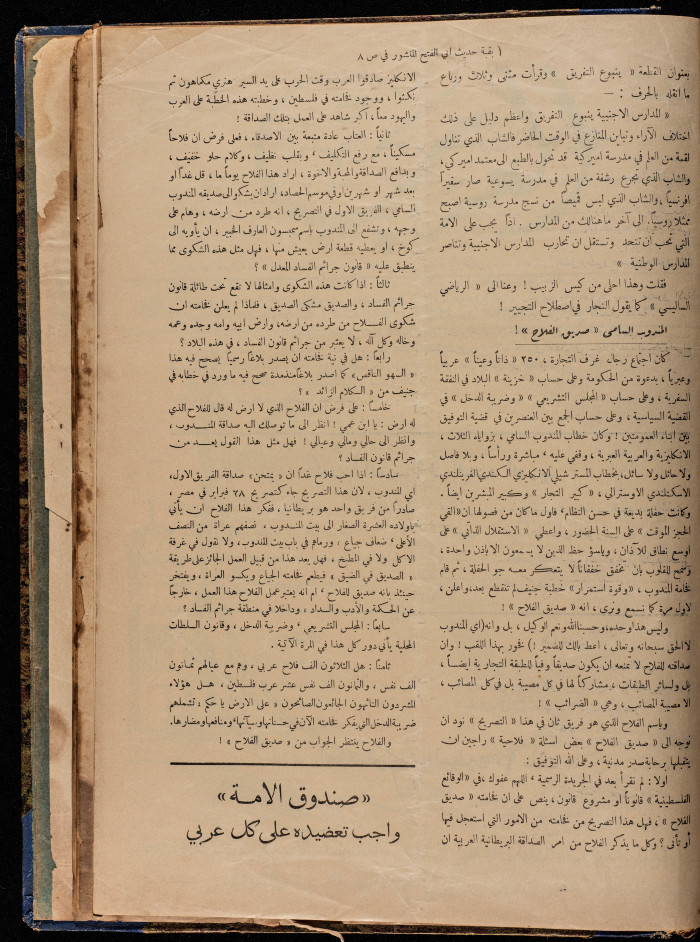 ( بقية حديث ابي الفتح المنشور في ص ٨
بعنوان القطعة « ينبوع التفريق » وقرأت مثنى وثلاث ورباع
ما انقله بالحرف : —
« المدارس الاجنبية ينبوع التفريق واعظم دليل على ذلك
اختلاف الآراء وتباين المنازع في الوقت الحاضر فالشاب الذي تناول
لقمة من العلم في مدرسة اميركية قد تحول بالطبع الى معتمد اميركي،
والشاب الذي تجرع رشفة من العلم في مدرسة يسوعية صار سفيراً
افرنسياً والشاب الذي لبس قميصاً من نسج مدرسة روسية اصبح
ممثلا روسياً. الى آخر ما هنالك من المدارس . اذاً يجب على الامة
التي تحب ان تتحد وتستقل ان تحارب المدارس الاجنبية وتناصر
المدارس الوطنية »
فقلت وهذا احلى من كيس الزبيب ! وعنا الى « الرياضي
الساليسي » كما يقول النجار في اصطلاح التجبير !
المندوب السامي « صديق الفلاح » !
كان اجتماع رجال غرف التجارة ، ٢٥٠ « ذاتاً وعيناً » عربياً
وعبرياً ، بدعوة من الحكومة وعلى حساب « خزينة » البلاد في النفقة
السفرية ، وعلى حساب « المجلس التشريعي » « وضريبة الدخل » في
القضية السياسية ، وعلى حساب الجمع بين العنصرين في قضية التوفيق
بين ابناء العمومتين ! وكان خطاب المندوب السامي ، بزواياه الثلاث ،
الانكليزية والعربية العبرية ، وقفي عليه ' مباشرة ورأساً ، وبلا فاصل
ولا حائل ولا سائل، بخطاب المستر شيلي الانكليزي الكندي الغرينلندي
الاسكتلندي الاوسترالي ، « كبير التجار » وكبير المبشرين ايضاً .
وكانت حفلة بديعة في حسن النظام' فاول ما كان من فصولها ان « القي
الحجز الموقت » على السنة الحضور ، واعطي « الاستقلال الذاتي » على
اوسع نطاق للآذان ، وياسوء حظ الذين لا يسمعون الا باذن واحدة ،
وسمح للقلوب بان تخفق خفقاناً لا يتعكر معه جو الحفلة ، ثم قام
فخامة المندوب ، « وقوة استمرار » خطبة جنيف لم تنقطع بعد، واعلن ،
لاول مرة كما نسمع ونرى ، انه « صديق الفلاح » !
وليس هذا وحده، وحسبنا الله ونعم الوكيل ، بل وانه (اي المندوب
لا الحق سبحانه وتعالى ، اعط بالك للضمير !) فخور بهذا اللقب ! وان
صداقته للفلاح لا تمنعه ان يكون صديقاً وفياً للطبقة التجارية ايضاً ،
بل ولسائر الطبقات ، مشاركاً لها في كل مصيبة بل في كل المصائب ،
الا مصيبة المصائب ، وهي « الضرائب » !
وباسم الفلاح الذي هو فريق ثان في هذا « التصريح » نود ان
نوجه الى « صديق الفلاح » بعض اسئلة « فلاحية » راجين ان
يتقبلها برحابة صدر مدنية ، وعلى الله التوفيق :
اولا : لم نقرأ بعد في الجريدة الرسمية ' اللهم عفوك ، في « الوقائع
الفلسطينية » قانوناً او مشروع قانون ، ينص على ان فخامته « صديق
الفلاح » ، فهل هذا التصريح من فخامته من الامور التي استعجل فيها
أو تأنى ? وكل ما يذكر الفلاح من امر الصداقة البريطانية العربية ان
الانكليز صادقوا العرب وقت الحرب على يد السير هنري مكماهون ثم
نكثوا ، ووجود فخامته في فلسطين ، وخطبته هذه الخطبة على العرب
واليهود معاً ، أكبر شاهد على العمل بتلك الصداقة !
ثانياً : العتاب عادة متبعة بين الاصدقاء ، فعلى فرض ان فلاحاً
مسكيناً ، مع رفع التكليف ' وبقلب نظيف ، وكلام حلو خفيف ،
وبدافع الصداقة والمحبة والاخوة ، اراد هذا الفلاح يوماً ما ، قل غداً او
بعد شهر او شهرين او في موسم الحصاد، اراد ان يشكو الى صديقه المندوب
السامي ، الفريق الاول في التصريح ، انه طرد من ارضه ، وهام على
وجهه ، وتشفع الى المندوب باسم سمبسون العارف الخبير ، ان يأويه الى
كوخ ، او يعطيه قطعة ارض يعيش منها ، فهل مثل هذه الشكوى مما
ينطبق عليه « قانون جرائم الفساد المعدل » ?
ثالثاً : اذا كانت هذه الشكوى وامثالها لا تقع تحت طائلة قانون
جرائم الفساد ، والصديق مشكى الصديق ، فلماذا لم يعلن فخامته ان
شكوى الفلاح من طرده من ارضه، وارض ابيه وامه وجده وعمه
وخاله وكل آله ، لا يعتبر من جرائم قانون الفساد ، في هذه البلاد ?
رابعاً : هل في نية فخامته ان يصدر بلاغاً رسمياً يصحح فيه هذا
« السهو الناقص » كما اصدر بلاغاً منذ مدة صحح فيه ما ورد في خطابه في
جنيف من « الكلام الزائد » ?
خامساً : على فرض ان الفلاح الذي لا ارض له قال للفلاح الذي
له ارض : يا ابن عمي ! انظر الى ما توصلك اليه صداقة المندوب ،
وانظر الى حالي ومالي وعيالي ! فهل مثل هذا القول يعد من
جرائم قانون الفساد ?
سادساً : اذا احب فلاح غداً ان « يمتحن » صداقة الفريق الاول،
اي المندوب ، لان هذا التصريح جاء كتصريح ٢٨ فبراير في مصر ،
صادراً من فريق واحد هو بريطانيا ، ففكر هذا الفلاح ان يأتي
باولاده العشرة الصغار الى بيت المندوب ، نصفهم عراة من النصف
الأعلى ' ضعاف جياع ، ورمام في باب بيت المندوب، ولا نقول في غرفة
الاكل ولا في المطبخ ، فهل يعد هذا من قبيل العمل الجائز على طريقة
« الصديق في الضيق » فيطعم فخامته الجياع ويكسو العراة ، ويفتخر
حينئذ بانه صديق للفلاح ' ام انه يعتبر عمل الفلاح هذا العمل ، خارجاً
عن الحكمة والأدب والسداد ، وداخلا في منطقة جرائم الفساد ?
سابعاً : المجلس التشريعي ' وضريبة الدخل ، وقانون السلطات
المحلية يأتي دور كل هذا في المرة الآتية .
ثامناً : هل الثلاثون الف فلاح عربي ، وهم مع عيالهم ثمانون
الف نفس ، والثمانون الف نفس عشر عرب فلسطين ، هل هؤلاء
المشردون التائهون الجائعون الصائحون « على الارض يا حكم » تشملهم
ضريبة الدخل التي يفكر فخامته الآن في حسناتها وسيآتها' ومنافعها ومضارها.
والفلاح ينتظر الجواب من « صديق الفلاح » !
«صندوق الامة»
واجب تعضيده على كل عربي